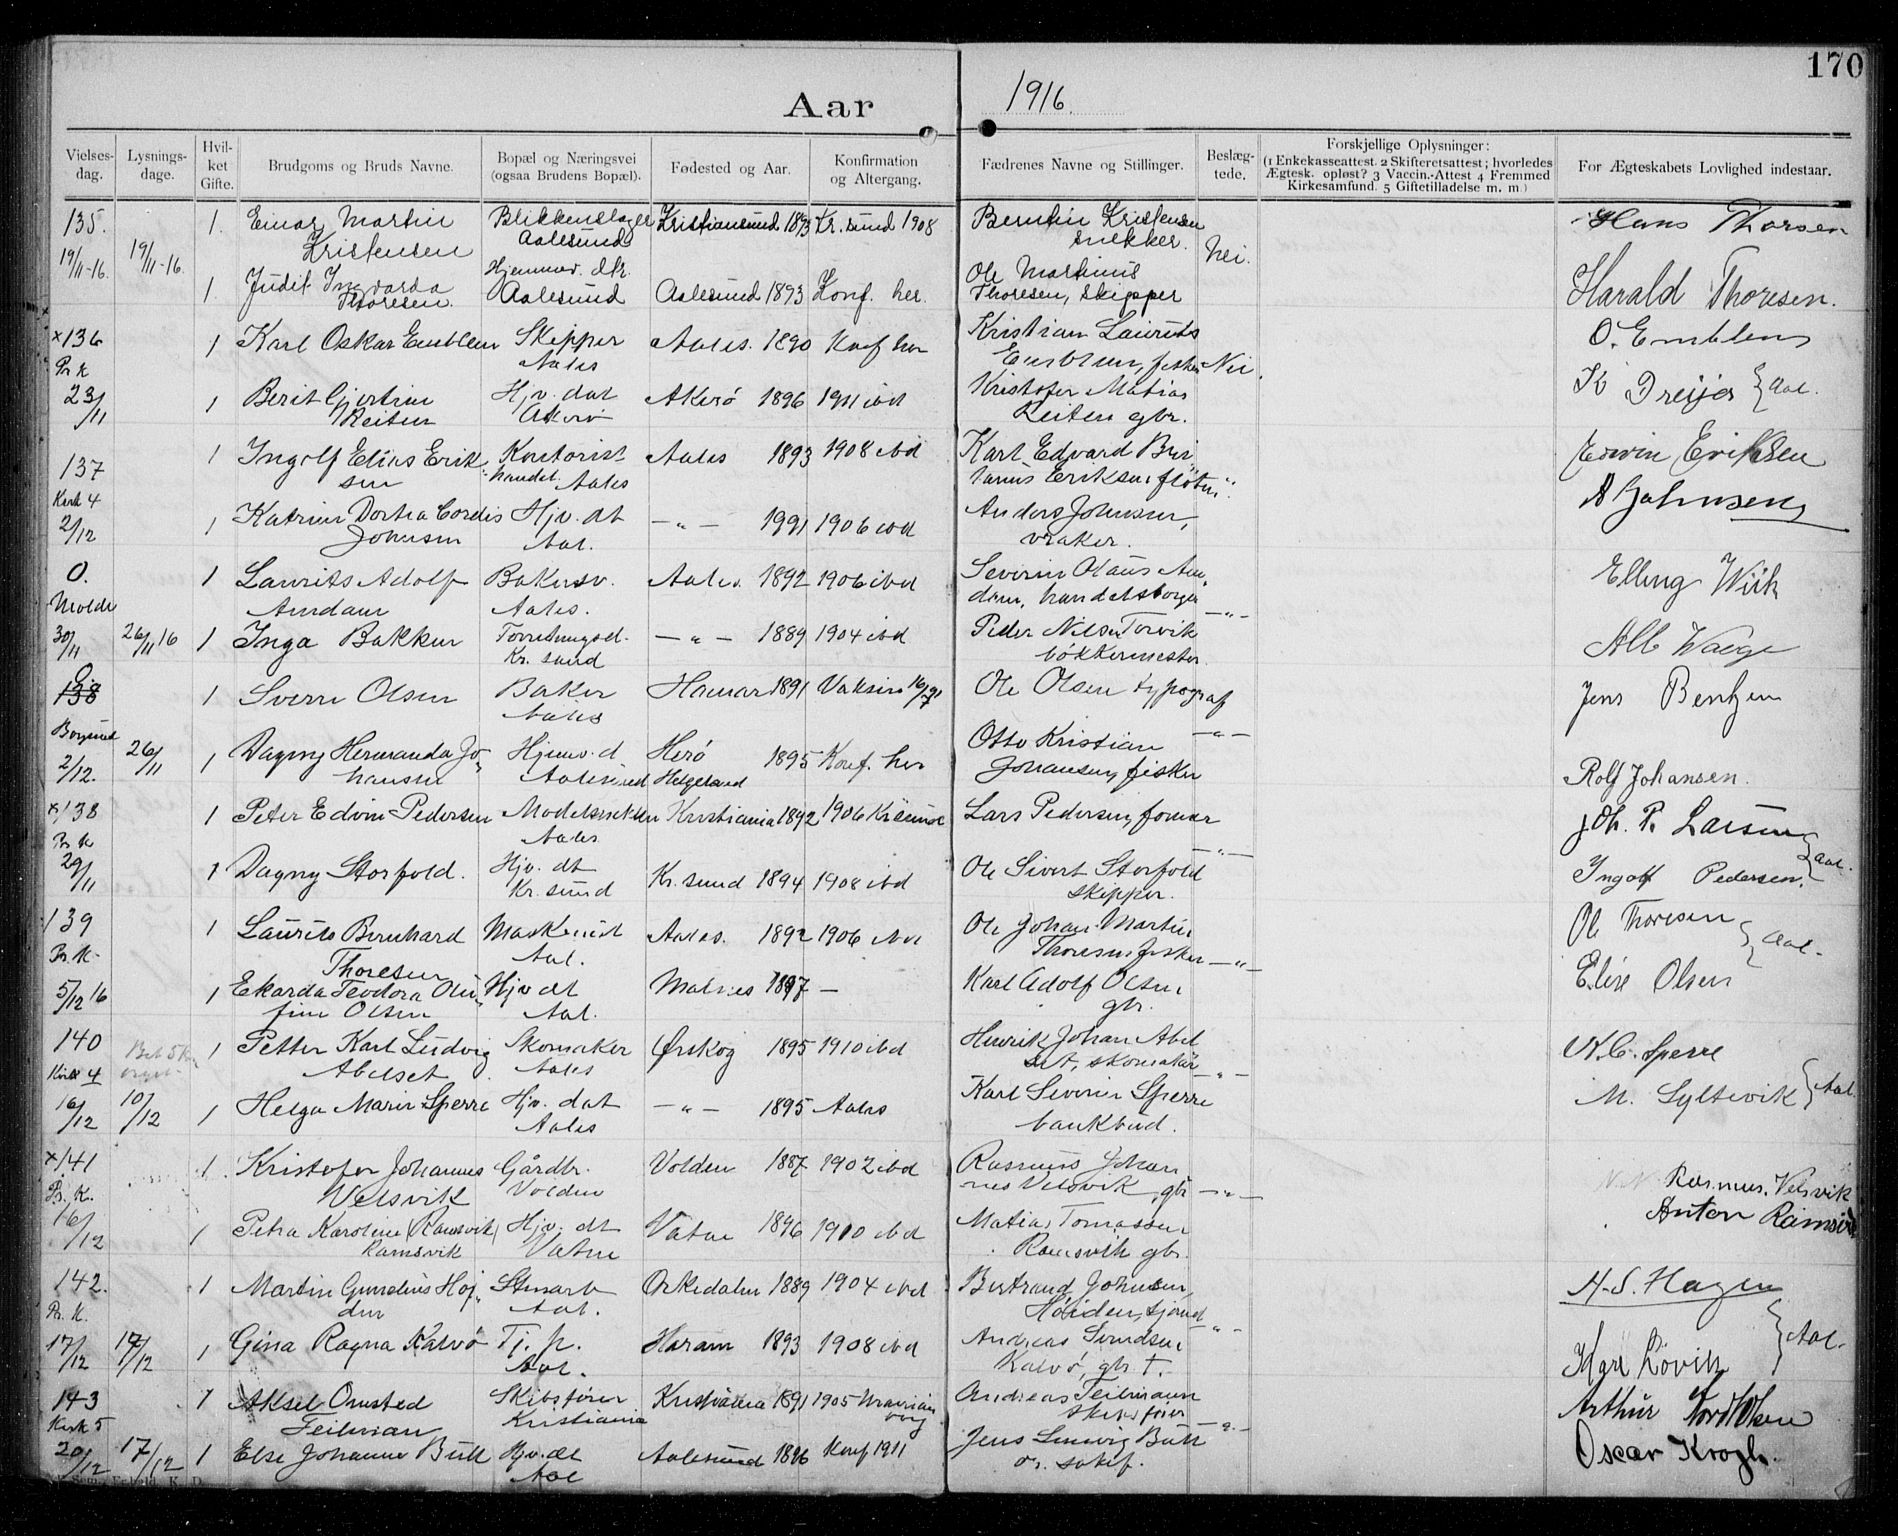 170
Aar 1916.
Vielses-dag. Lysnings-dage. Hvil-ket Gifte. Brudgoms og Bruds Navne. Bopæl og Næringsvei (ogsaa Brudens Bopæl). Fødested og Aar. Konfirmation og Altergang. Fædrenes Navne og Stillinger. Beslæg-tede. Forskjellige Oplysninger: (1 Enkekasseattest. 2 Skifteretsattest; hvorledes Ægtesk. opløst? 3 Vaccin.-Attest 4 Fremmed Kirkesamfund. 5 Giftetilladelse m. m.) For Ægteskabets Lovlighed indestaar.
135. 1. Einar Martin Blikkenslager Kristiansund 1893 Kr.sund 1908 Berntin Kristensen Hans Thorsen
19/11-16. 19/11-16. Kristensen Aalesund snekker. Nei.
1. Judit Ingvarda Hjemmev. dtr. Aalesund 1893 Konf. her. Ole Martinus Harald Thoresen.
Thoresen. Aalesund Thoresen, skipper
x136 1 Karl Oskar Emblem Skipper Aales. 1890 Konf her Kristian Laurits O. Emblem
Pr k Aales Emblem, fisker Nei.
23/11 1 Berit Gjertine Hjv. dat Akerø 1896 1911 ibd Kristofer Matias K Dreyer Aal.
Reiten Akerø Reiten gbr.
137 1 Ingolf Elias Erik Kontorist Aales 1893 1908 ibd Karl Edvard Bri Edwin Eriksen
sen handel. Aales tanius Eriksen, fløtm. -"-
Kirk 4
2/12 1 Katrine Dortea Cordis Hjv. dt -"- 1991 1906 ibd Anders Johnsen, A Johnsen
Johnsen Aal. vraker.
0. 1 Laurits Adolf Bakersv. Aales. 1892 1906 ibd Severin Olaus Am Elling Wiik
Molde Amdam Aales. dam, handelsborger -"-
30/11 26/11 16 1 Inga Bakken Forretningsd. -"- 1889 1904 ibd Peder Nilsen Torvik Alb Waage
Kr. sund bøkkermester.
0.
138 1 Sverre Olsen Baker Hamar 1891 Vaksin 16/7 91 Ole Olsen typograf Jens Bentzen
Borgund Aales -"-
2/12. 26/11 1 Dagny Hermanda Jo Hjemv. d Herø 1895 Konf. her Otto Kristian Rolf Johansen.
hansen Aalesund Helgeland Johansen, fisker
x138 1 Peter Edvin Pedersen Modelsnekker Kristiania 1892 1906 Kr.sund Lars Pedersen, formar Joh. P. Larsen
Pr K Aales -"-
29/11 1 Dagny Storfold. Hjv. dt Kr. sund 1894 1908 ibd Ole Sivert Storfold Ingolf Pedersen. Aal.
Kr. sund skipper.
139 1 Laurits Bernhard Maskinist Aales. 1892 1906 ibd Ole Johan Martin Ol Thoresen
Pr. K. Thoresen Aal. Thoresen fisker -"- Aal.
5/12 16 1 Ekarda Teodora Olu Hjv dt Malnes 1897 — Karl Adolf Olsen Elise Olsen
fine Olsen Aal. gbr.
140 1 Petter Karl Ludvig Skomaker Ørskog 1895 1910 ibd Henrik Johan Abel K. C. Sperre
Kirk 4 Abelset Aales set, skomaker -"-
16/12 10/12 1 Helga Marie Sperre Hjv. dat -"- 1895 Aales Karl Severin Sperre M. Syltevik Aal.
Aales bankbud.
x141 1. Kristofer Johannes Gårdbr. Volden 1887 1902 ibd Rasmus Johan Rasmus. Velsvik
Pr. K. Velsvik Volden nes Velsvik, gbr -"-
16/12 1 Petra Karoline (Ramsvik) Hjv. dt Vatne 1896 1910 ibd Matias Tomassen Anton Ramsvik
Ramsvik Vatne Ramsvik gbr.
142. 1 Martin Gunelius Høj Stuert Orkedalen 1889 1904 ibd Bertrand Johnsen A. S. Hagen
Pr. K. den Aal. Høiden, -"-
17/12 17/12 1 Gina Ragna Kalvø Tj. p. Haram 1893 1908 ibd Andreas Svendsen Karl Løvik Aal.
Aal. Kalvø, gbr. †.
143 1 Aksel Onsted Skibsfører Kristiania 1891 1905 Andreas Teilmann Arthur Nord Olsen
Kirk 5 Teilman Kristiania skibsfører -"-
20/12 17/12 1 Else Johanne Bull Hjv. dt Aalesund 1896 Konf 1911 Jens Ludvig Bull Oscar Krogh.
Aal or. sakf.